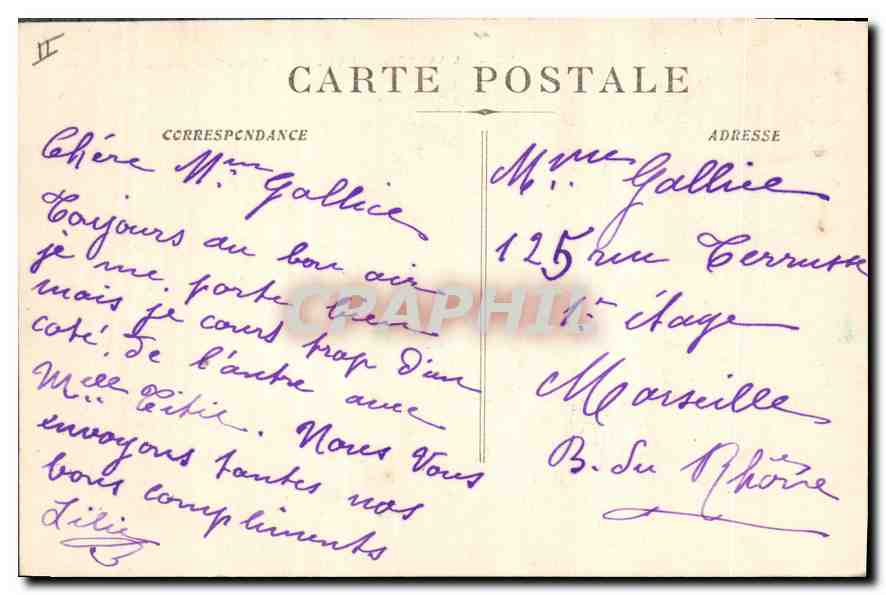 II
CARTE POSTALE
CORRESPONDANCE
ADRESSE
Chére Mme Gallice
Toujours au bon air
je me porte bien
mais je cours trop d'un
coté. de l'autre avec
Melle Titie. Nous Vous
envoyons toutes nos
bons compliments
Lilie
Mme Gallice
125 rue Terrusse
1er étage
Marseille
B. du Rhône
CPAPHIL